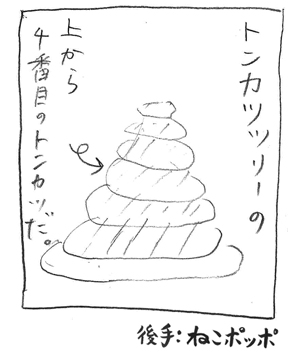 トンカツツリーの
上から
4番目のトンカツだ。
後手：ねこポッポ